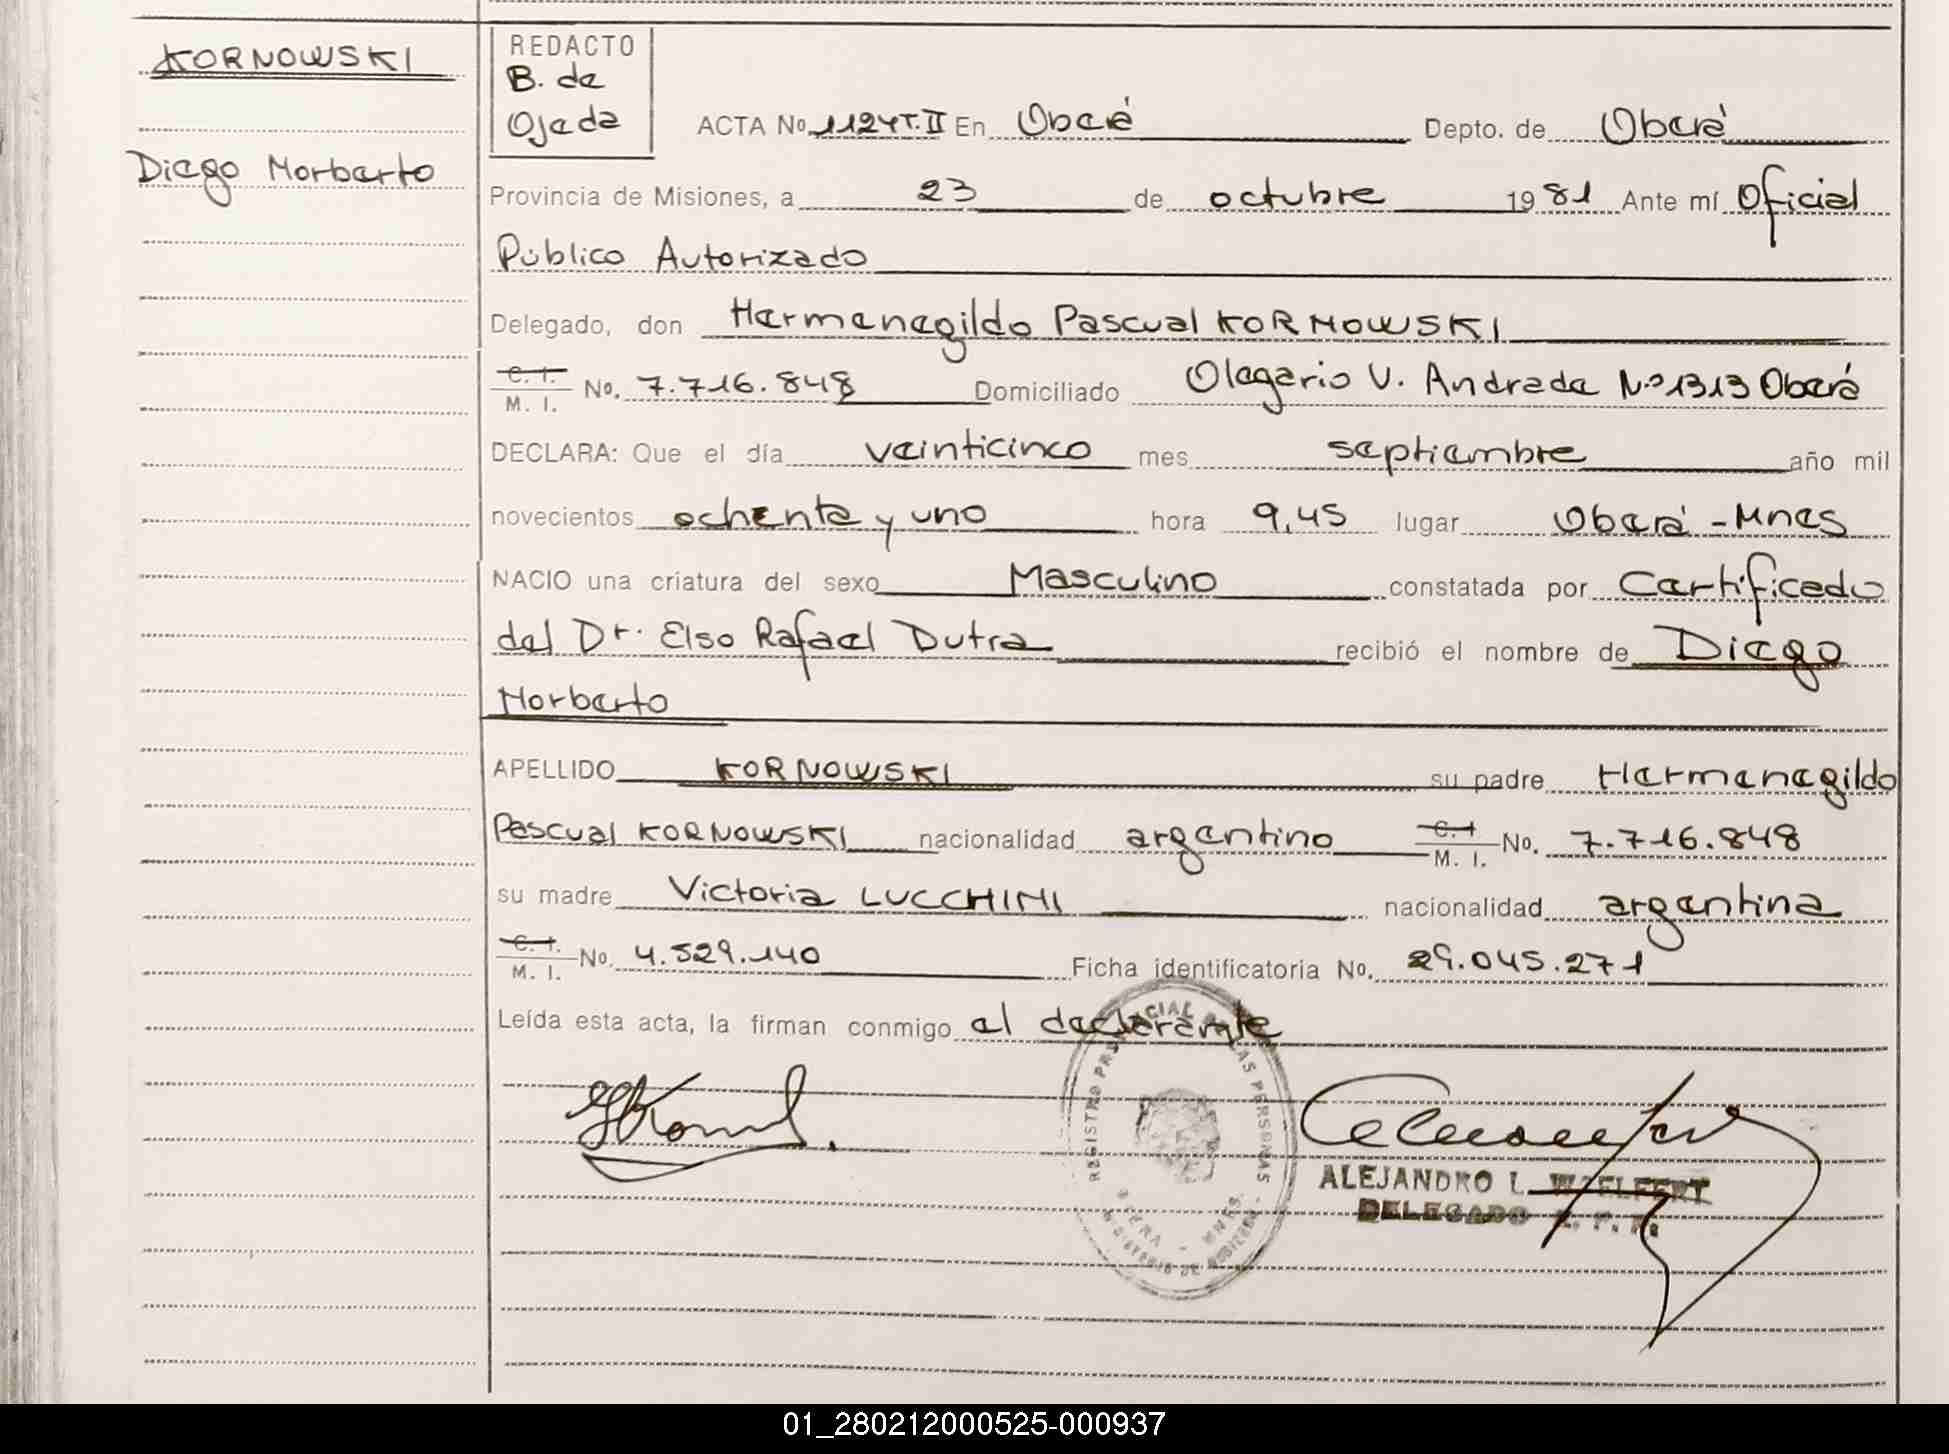 KORNOWSKI
Diego Norberto
REDACTO
B. de
Ojeda
ACTA No. 1124 T. II En Oberá Depto. de Oberá
Provincia de Misiones, a 23 de octubre 1981 Ante mí Oficial
Público Autorizado
Delegado, don Hermenegildo Pascual KORNOWSKI
C. I.
M. I. No. 7.716.848 Domiciliado Olegario V. Andrade Nº 1313 Oberá
DECLARA: Que el día veinticinco mes septiembre año mil
novecientos ochenta y uno hora 9,45 lugar Oberá - Mnes
NACIO una criatura del sexo Masculino constatada por Certificado
del Dr. Elso Rafael Dutra recibió el nombre de Diego
Norberto
APELLIDO KORNOWSKI su padre Hermenegildo
Pascual KORNOWSKI nacionalidad argentino C. I.
M. I. No. 7.716.848
su madre Victoria LUCCHINI nacionalidad argentina
C. I.
M. I. No. 4.529.140 Ficha identificatoria No. 29.045.271
Leída esta acta, la firman conmigo el declarante
REGISTRO PROVINCIAL DE LAS PERSONAS
OBERA - MNES.
ALEJANDRO L. WOELFERT
DELEGADO R. P. P.
01_280212000525-000937